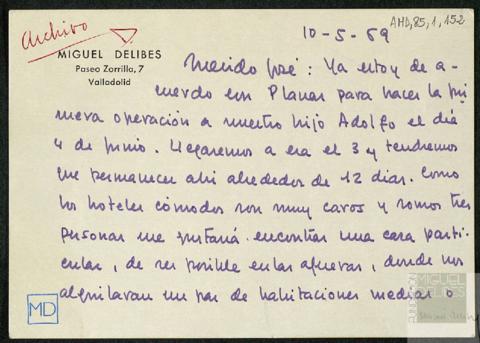 Archivo
AMD,85,1,152
10-5-69
MIGUEL DELIBES
Paseo Zorrilla, 7
Valladolid
Querido José: Ya estoy de a-
cuerdo con Planas para hacer la pri
mera operación a nuestro hijo Adolfo el día
4 de junio. Llegaremos a esa el 3 y tendremos
que permanecer ahí alrededor de 12 días. Como
los hoteles cómodos son muy caros y somos tres
personas me gustaría encontrar una casa parti-
cular, de ser posible en las afueras, donde nos
alquilaran un par de habitaciones mediar o
MD
FUNDACIÓN
MIGUEL
DELIBES